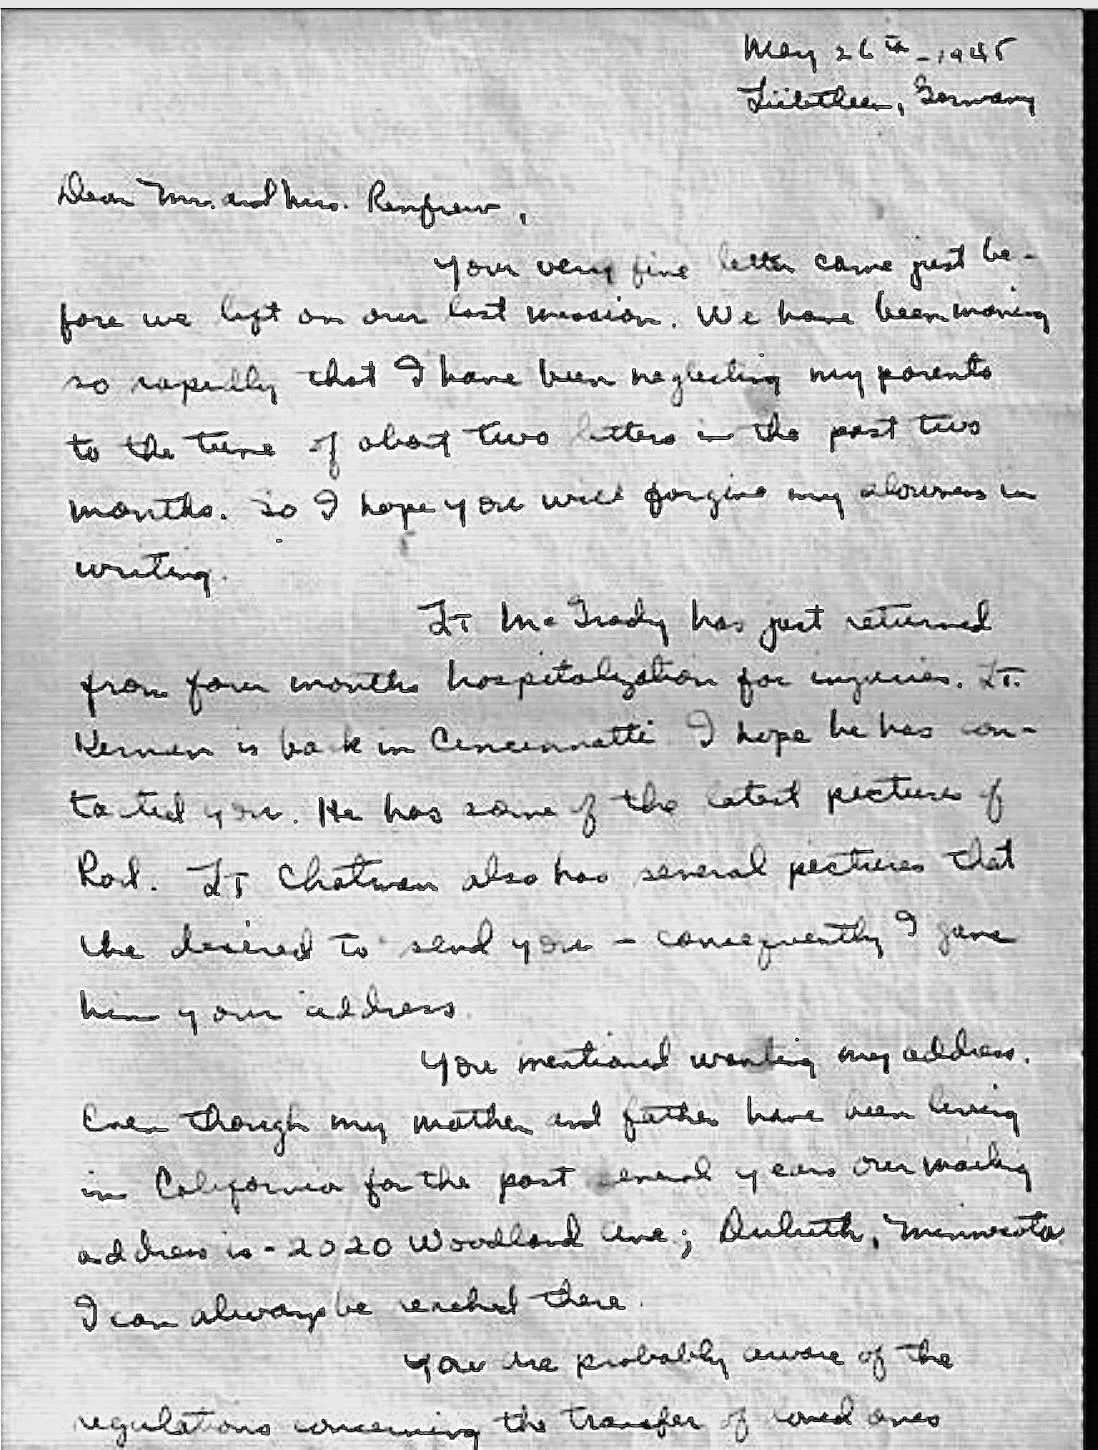 May 26th - 1945
Lübtheen, Germany
Dear Mr. and Mrs. Renfrew,
Your very fine letter came just be-
fore we left on our last mission. We have been moving
so rapidly that I have been neglecting my parents
to the tune of about two letters in the past two
months. So I hope you will forgive my slowness in
writing.
Lt McGrady has just returned
from four months hospitalization for injuries. Lt.
Kernan is back in Cincinnatti I hope he has con-
tacted you. He has some of the latest pictures of
Rod. Lt Chatman also has several pictures that
he desired to send you - consequently I gave
him your address.
You mentioned wanting my address.
Even though my mother and father have been living
in California for the past several years our mailing
address is - 2020 Woodland Ave; Duluth, Minnesota
I can always be reached there.
You are probably aware of the
regulations concerning the transfer of loved ones